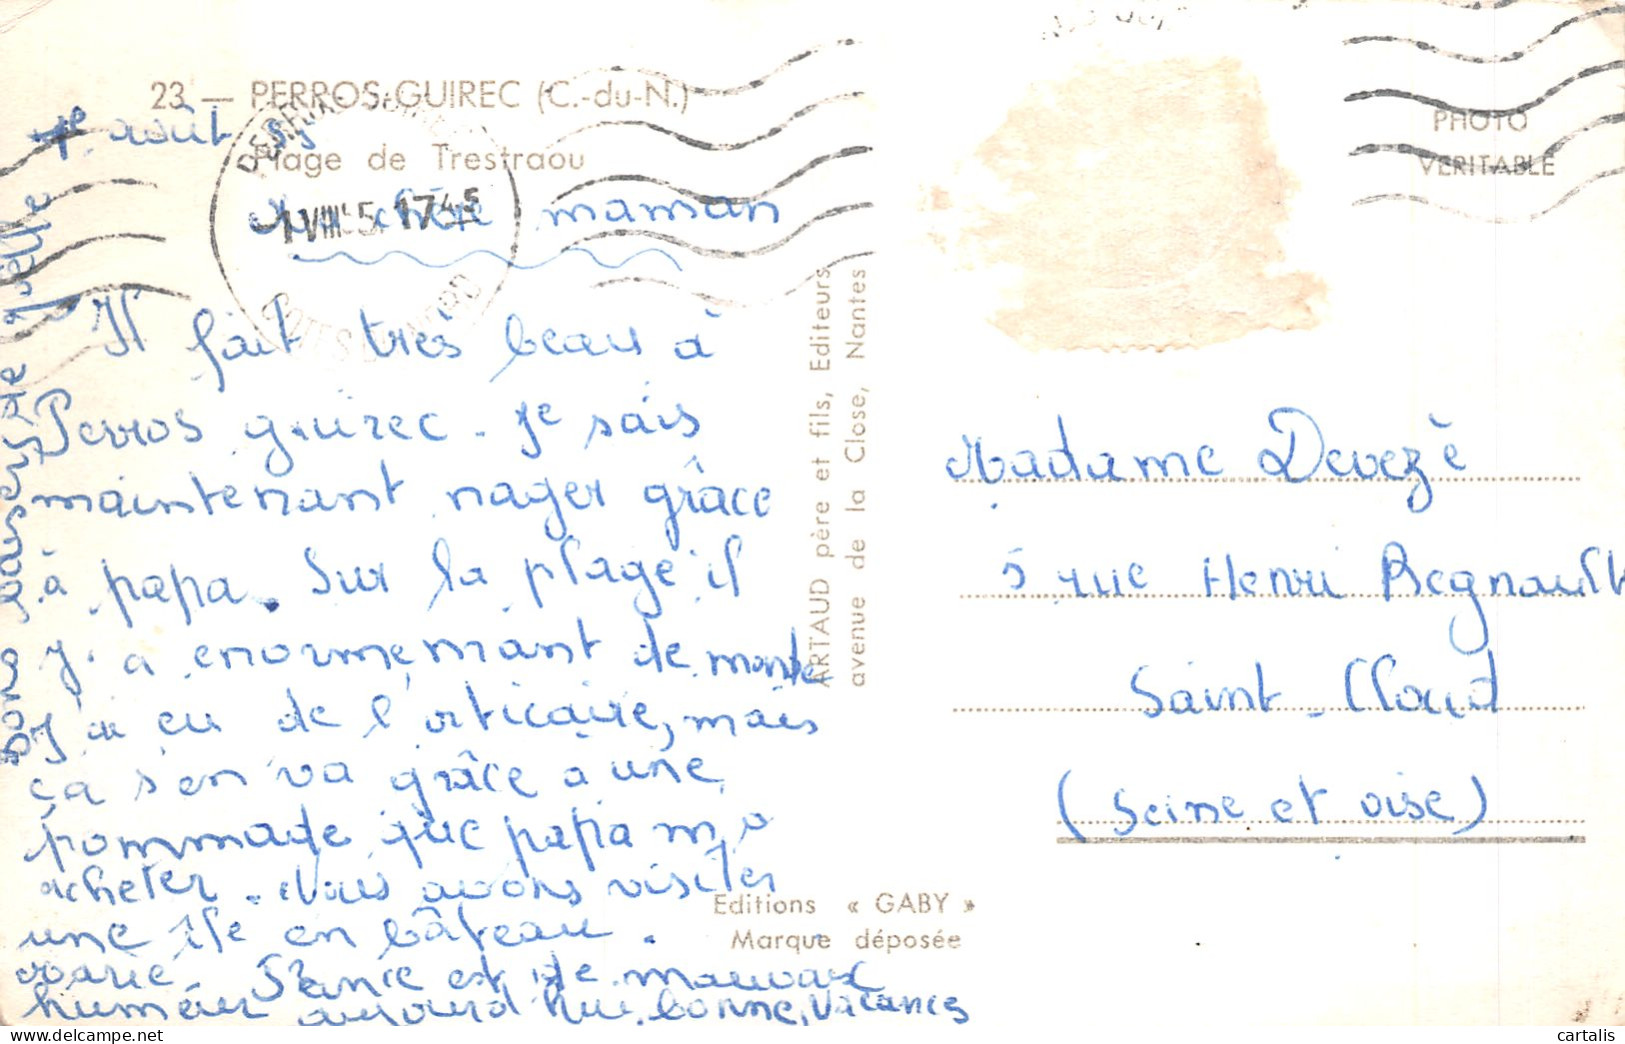 23 — PERROS-GUIREC (C.-du-N.)
1e août 55
Plage de Trestraou
1 VIII 5 1745
Ma chère maman
Il fait très beau à
Perros guirec. Je sais
maintenant nager grâce
à papa. Sur la plage il
y a enormement de monde
J'ai eu de l'orticaire, mais
ça s'en va grâce a une
pommade que papa m'a
acheter. Nous avons visiter
une île en bâteau.
Marie France est de mauvaise
humeur aujourd'hui. bonne vacances
bons baisers de Joëlle
ARTAUD père et fils, Editeurs
avenue de la Close, Nantes
Editions « GABY »
Marque déposée
PHOTO
VERITABLE
Madame Devezè
5 rue Henri Regnault
Saint-Cloud
(Seine et oise)
cartalis